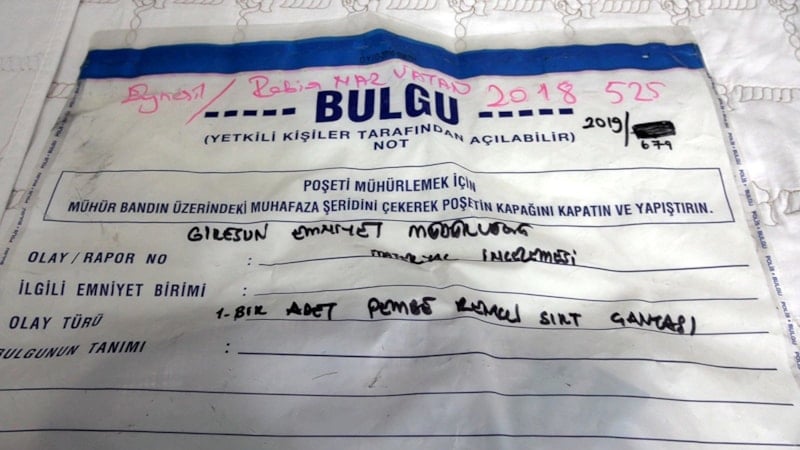 Eynesil / Rabia NAZ VATAN 2018 525
----- BULGU -----
(YETKİLİ KİŞİLER TARAFINDAN AÇILABİLİR)
NOT
2019/
679
POŞETİ MÜHÜRLEMEK İÇİN
MÜHÜR BANDIN ÜZERİNDEKİ MUHAFAZA ŞERİDİNİ ÇEKEREK POŞETİN KAPAĞINI KAPATIN VE YAPIŞTIRIN.
GİRESUN EMNİYET MÜDÜRLÜĞÜ
OLAY / RAPOR NO : İNCELEMESİ
İLGİLİ EMNİYET BİRİMİ :
OLAY TÜRÜ : 1- BİR ADET PEMBE RENKLİ SIRT ÇANTASI
BULGUNUN TANIMI :